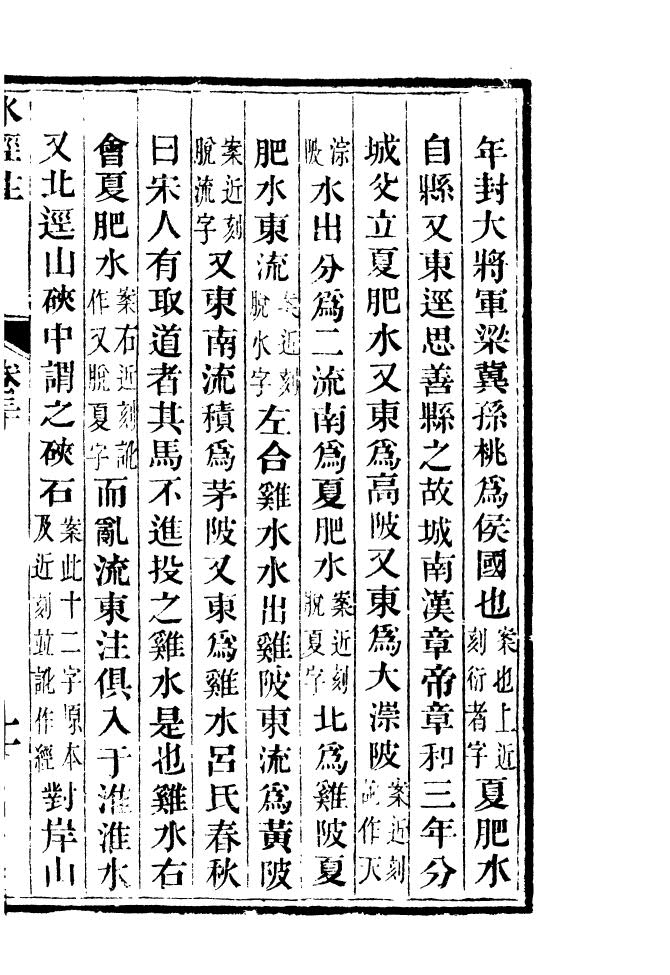 年封大將軍梁冀孫桃爲侯國也案也上近刻衍者字夏肥水
自縣又東逕思善縣之故城南漢章帝章和三年分
城父立夏肥水又東爲高陂又東爲大漴陂案近刻訛作天
淙陂水出分爲二流南爲夏肥水案近刻脫夏字北爲雞陂夏
肥水東流案近刻脫水字左合雞水水出雞陂東流爲黃陂
案近刻脫流字又東南流積爲茅陂又東爲雞水呂氏春秋
曰宋人有取道者其馬不進投之雞水是也雞水右
會夏肥水案右近刻訛作又脫夏字而亂流東注俱入于淮淮水
又北逕山硤中謂之硤石案此十二字原本及近刻竝訛作經對岸山
水經注 卷三十 十一